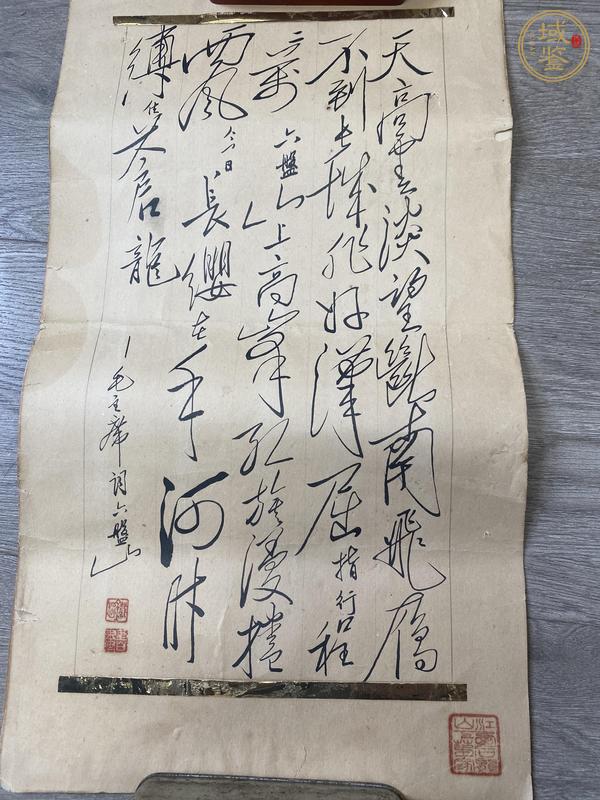 天高雲淡望斷南飛雁
不到長城非好漢屈指行程
二萬六盤山上高峯紅旗漫捲
西風今日長纓在手何时
縛住蒼龍
毛主席詞六盤山
域鑒